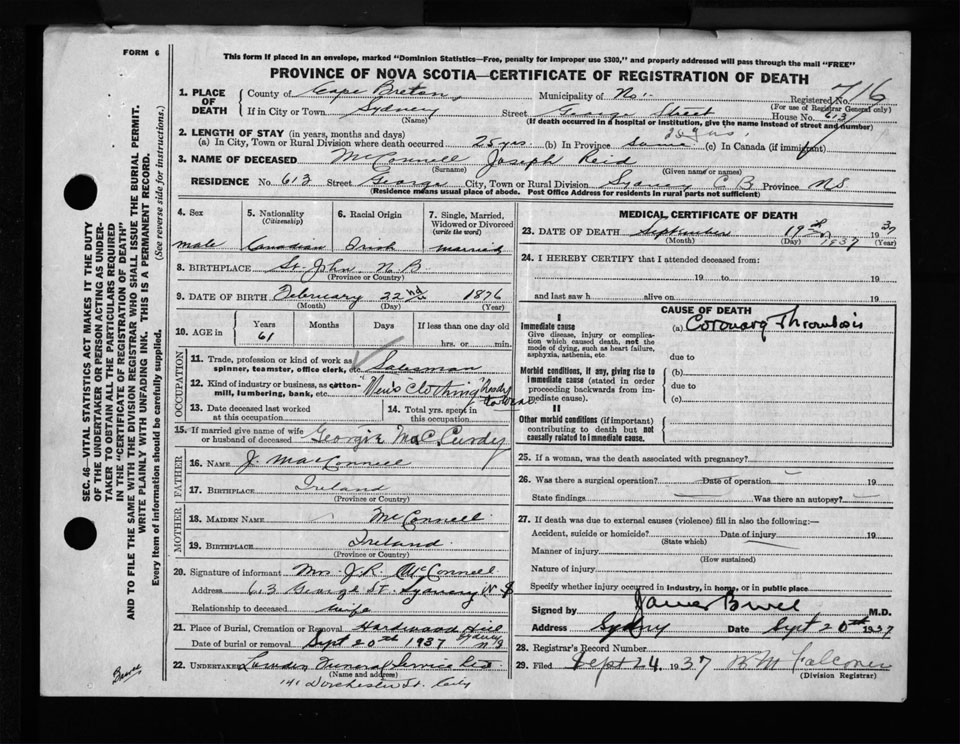 FORM 6
This form if placed in an envelope, marked "Dominion Statistics—Free, penalty for improper use $300," and properly addressed will pass through the mail "FREE"
PROVINCE OF NOVA SCOTIA—CERTIFICATE OF REGISTRATION OF DEATH
SEC. 46—VITAL STATISTICS ACT MAKES IT THE DUTY
OF THE UNDERTAKER OR PERSON ACTING AS UNDER-
TAKER TO OBTAIN ALL THE PARTICULARS REQUIRED
IN THE "CERTIFICATE OF REGISTRATION OF DEATH"
AND TO FILE THE SAME WITH THE DIVISION REGISTRAR WHO SHALL ISSUE THE BURIAL PERMIT.
WRITE PLAINLY WITH UNFADING INK. THIS IS A PERMANENT RECORD.
Every item of information should be carefully supplied. (See reverse side for instructions.)
1. PLACE OF DEATH
County of Cape Breton Municipality of No. Registered No. 716
(For use of Registrar General only)
If in City or Town Sydney Street George Street House No. 613
(Name) (If death occurred in a hospital or institution, give the name instead of street and number)
2. LENGTH OF STAY (in years, months and days)
(a) In City, Town or Rural Division where death occurred 25 yrs (b) In Province Same (c) In Canada (if immigrant)
3. NAME OF DECEASED McConnell Joseph Reid
(Surname) (Given name or names)
RESIDENCE No. 613 Street George City, Town or Rural Division Sydney C B Province NS
(Residence means usual place of abode. Post Office Address for residents in rural parts not sufficient)
4. Sex male
5. Nationality (Citizenship) Canadian
6. Racial Origin Irish
7. Single, Married, Widowed or Divorced (write the word) married
8. BIRTHPLACE St. John N.B.
(Province or Country)
9. DATE OF BIRTH February 22nd 1876
(Month) (Day) (Year)
10. AGE in Years 61 Months Days If less than one day old
hrs. or min.
OCCUPATION
11. Trade, profession or kind of work as spinner, teamster, office clerk, etc. Salesman
12. Kind of industry or business, as cotton-mill, lumbering, bank, etc. Men's Clothing
13. Date deceased last worked at this occupation
14. Total yrs. spent in this occupation
15. If married give name of wife or husband of deceased Georgie MacCurdy
FATHER
16. NAME J. MacConnell
17. BIRTHPLACE Ireland
(Province or Country)
MOTHER
18. MAIDEN NAME McConnell
19. BIRTHPLACE Ireland
(Province or Country)
20. Signature of informant Mrs. J.R. McConnell
Address 613 George St. Sydney N S
Relationship to deceased wife
21. Place of Burial, Cremation or Removal Hardwood Hill Sydney N S
Date of burial or removal Sept 20th 1937
22. UNDERTAKER Lowden Funeral Service Ltd
(Name and address)
141 Dorchester St. City
MEDICAL CERTIFICATE OF DEATH
23. DATE OF DEATH September 19th 1937
(Month) (Day) 1937 (Year)
24. I HEREBY CERTIFY that I attended deceased from:
19 to 19
and last saw h alive on 19
CAUSE OF DEATH
I
Immediate cause (a) Coronary Thrombosis
Give disease, injury or complication which caused death, not the mode of dying, such as heart failure, asphyxia, asthenia, etc.
due to
Morbid conditions, if any, giving rise to immediate cause (stated in order proceeding backwards from immediate cause).
(b)
due to
(c)
II
Other morbid conditions (if important) contributing to death but not causally related to immediate cause.
25. If a woman, was the death associated with pregnancy?
26. Was there a surgical operation? Date of operation 19
State findings Was there an autopsy?
27. If death was due to external causes (violence) fill in also the following:—
Accident, suicide or homicide? Date of injury 19
(State which)
Manner of injury
(How sustained)
Nature of injury
Specify whether injury occurred in industry, in home, or in public place
Signed by James M.D.
Address Sydney Date Sept 20th 1937
28. Registrar's Record Number
29. Filed Sept 24, 1937 B M Falconer
(Division Registrar)